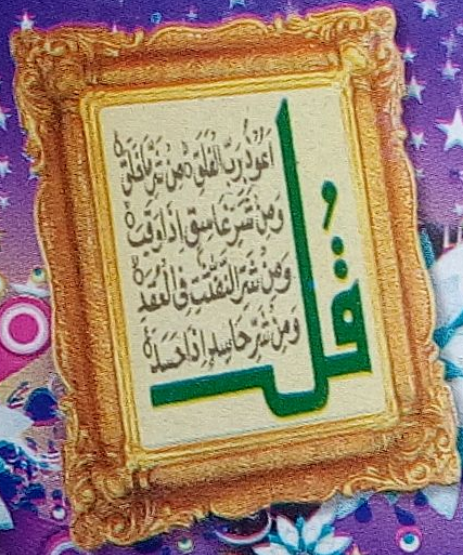 قُلْ
اَعُوْذُ بِرَبِّ الْفَلَقِ ۝ مِنْ شَرِّ مَا خَلَقَ ۝
وَمِنْ شَرِّ غَاسِقٍ اِذَا وَقَبَ ۝
وَمِنْ شَرِّ النَّفّٰثٰتِ فِى الْعُقَدِ ۝
وَمِنْ شَرِّ حَاسِدٍ اِذَا حَسَدَ ۝